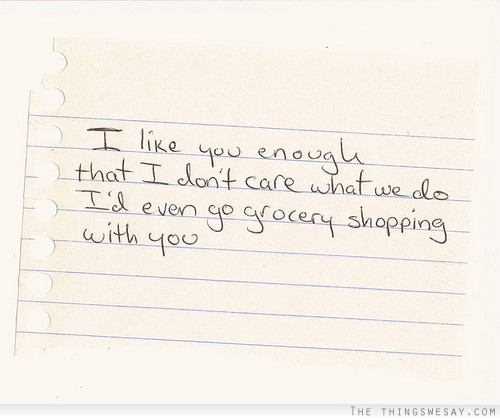 I like you enough
that I don't care what we do
I'd even go grocery shopping
with you
THE THINGSWESAY.COM